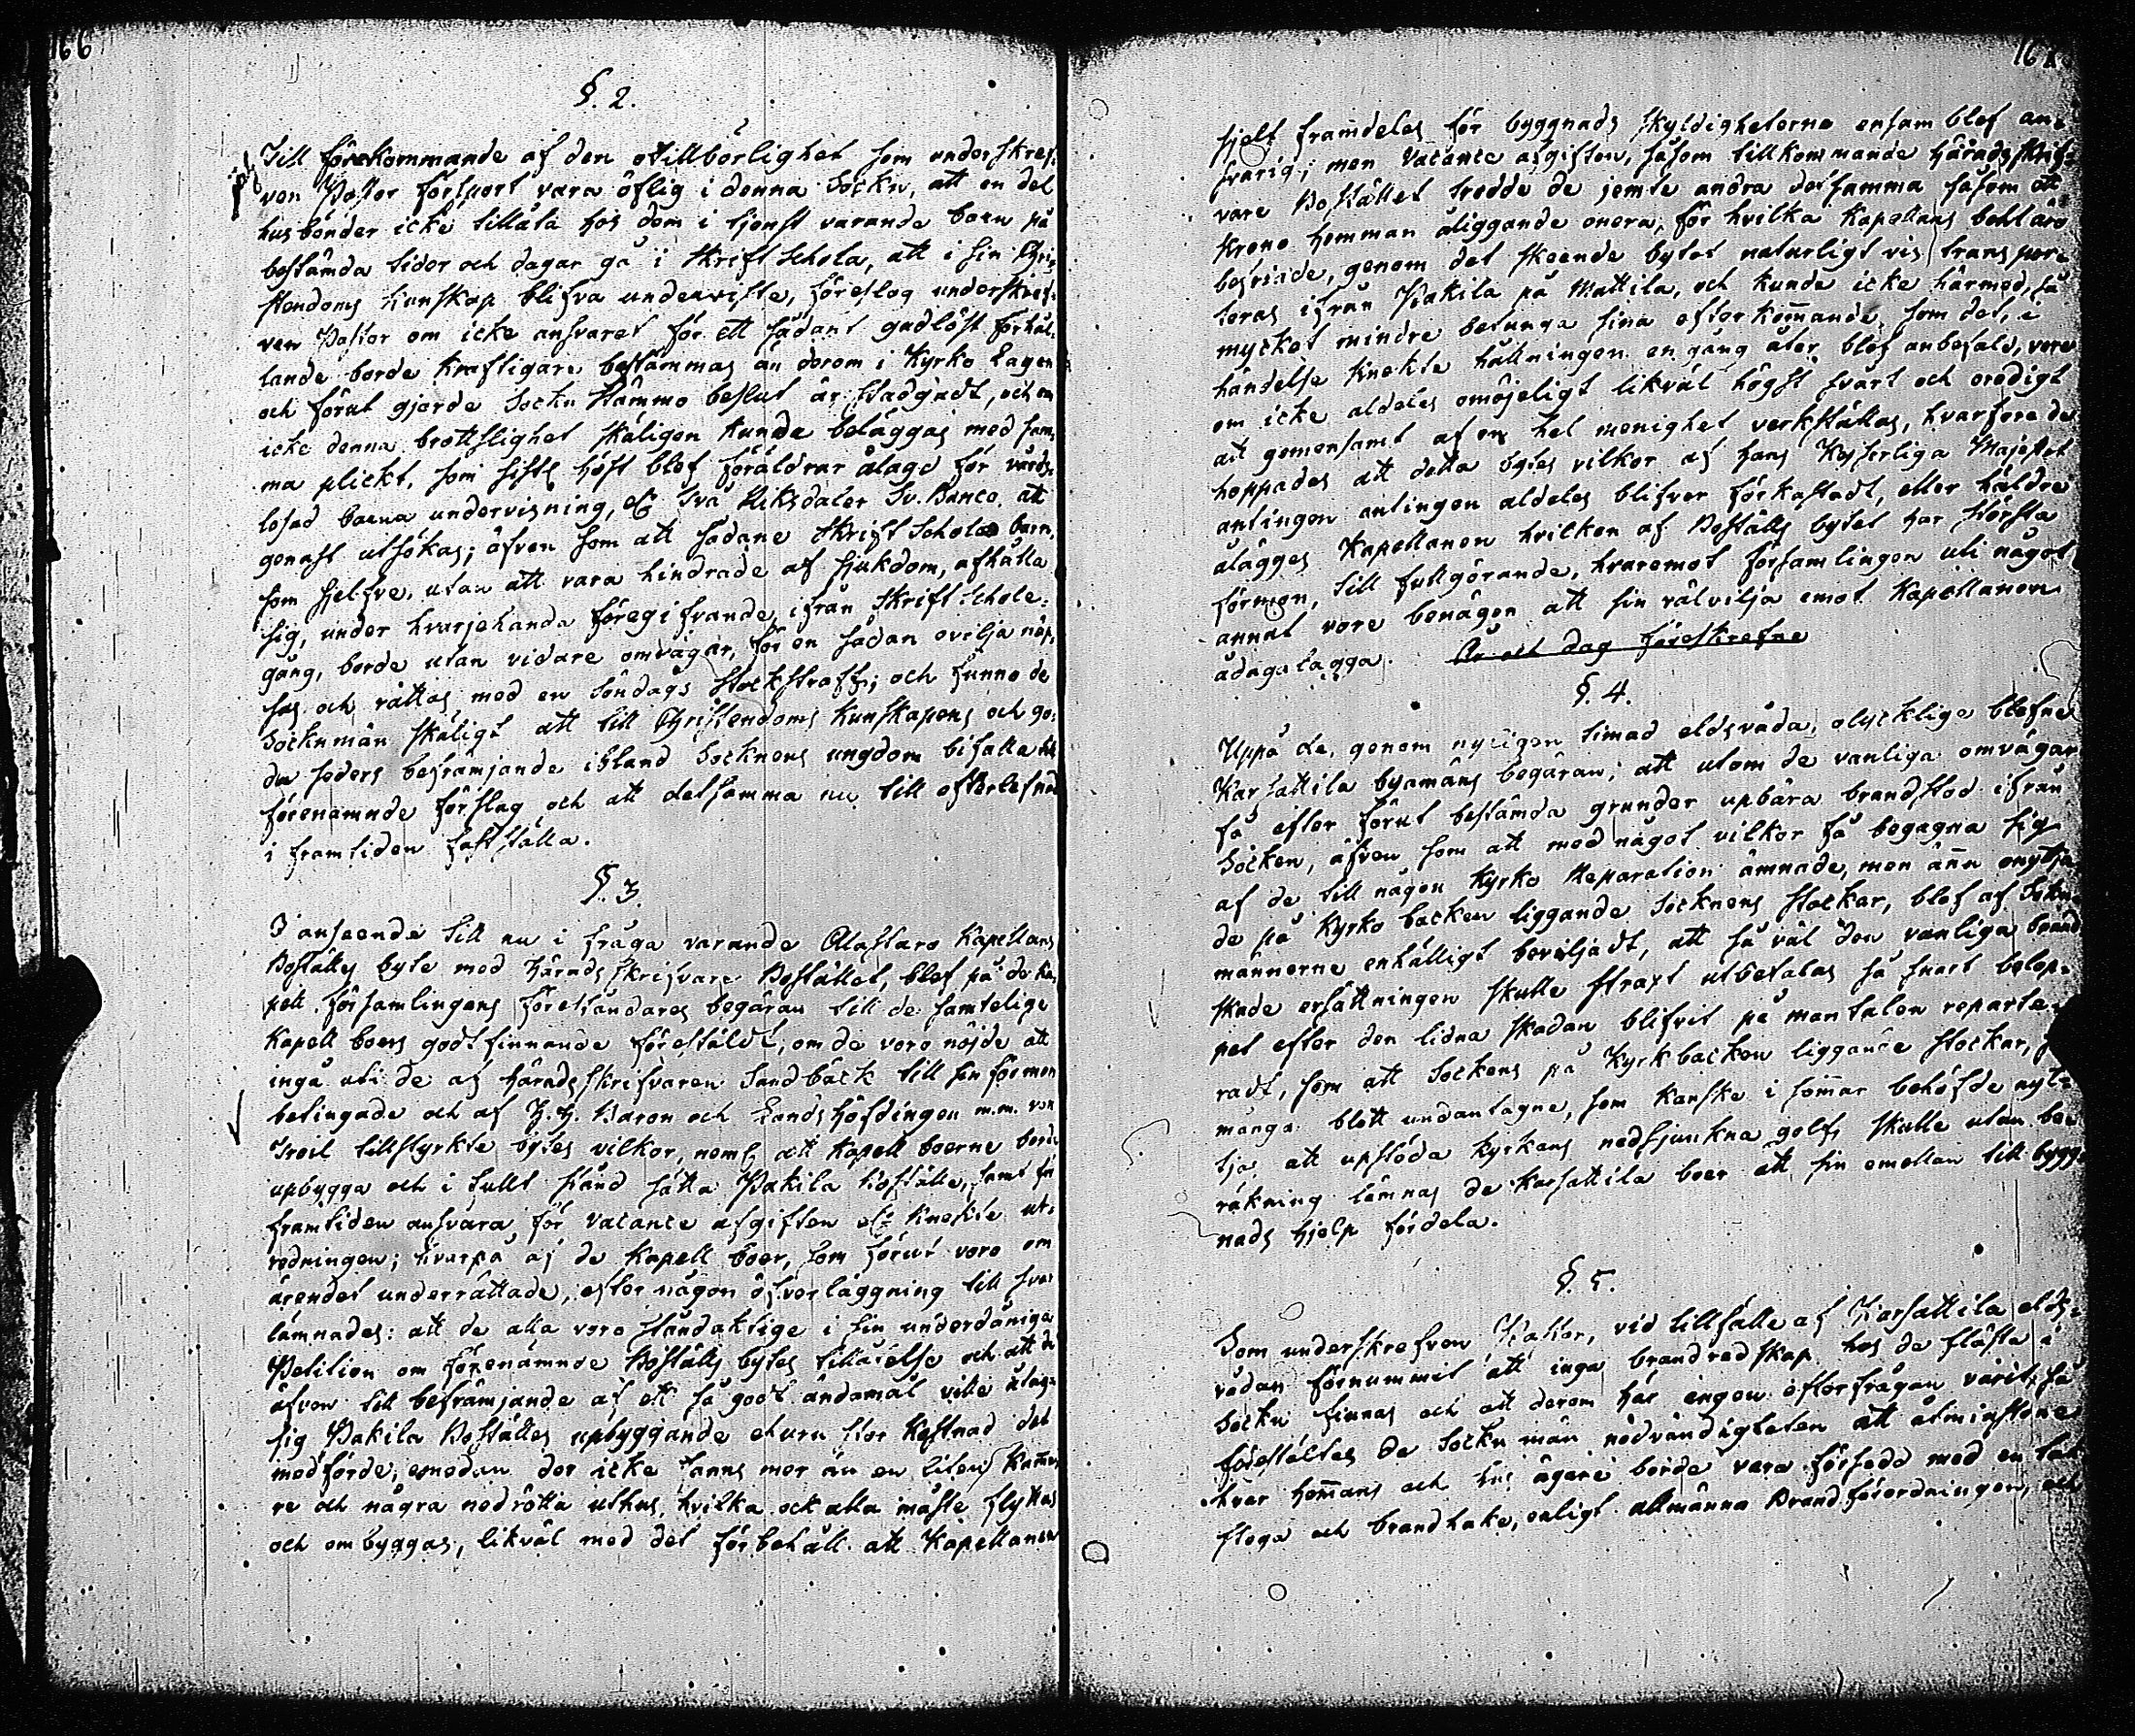 166
§. 2.
Till förekommande af den otillbörlighet som underskref-
ven Pastor försport vara öflig i denna Sockn, att en del
husbönder icke tillåta hos dem i tjenst varande barn på
bestämda tider och dagar gå i Skrift Schola, att i sin Chri-
stendoms kunskap blifva underviste, föreslog underskref-
ven Pastor om icke ansvaret för ett sådant gudlöst förhål-
lande borde kraftigare bestämmas än derom i Kyrko Lagen
och förut gjorde Sockn Stämmo beslut är stadgadt, och om
icke denna brottslighet skäligen kunde beläggas med sam-
ma plickt, som sistl. höst blef föräldrar ålagd för vårds-
losad barna undervisning, af två Riksdaler Sv. Banco, att
genast utsökas; äfven som att sådane Skrift Schola barn,
som sjelfve, utan att vara hindrade af sjukdom, afhålla
sig, under hvarjehanda föregifvande, ifrån Skrift Schole-
gång, borde utan vidare omvägar, för en sådan ovilja näp-
sas och rättas med en Söndags Stockstraff; och funno de
Sockn män skäligt att till Christendoms kunskapens och go-
da seders befrämjande ibland Socknens ungdom bifalla
förenämnde förslag och att detsamma nu till efterlefnad
i framtiden fastställa.
§. 3.
I anseende till nu i fråga varande Alastaro Kapellans
Boställes byte med Härads skrifvare Bostället, blef på de ka-
pell församlingens föreståndares begäran till de samtelige
Kapell boers godtfinnande förestäldt, om de voro nöjde att
ingå uti de af Häradsskrifvaren Sandbäck till sin förmon
betingade och af H. H. Baron och Landshöfdingen m.m. von
Troil tillstyrkte bytes vilkor, neml. att Kapell boerne borde
upbygga och i fullt stånd sätta Pakila Boställe, samt för
framtiden ansvara för Vacance afgiften Knekte ut-
redningen; hvarpå af de Kapell boer, som förut voro om
ärendet underrättade, efter någon öfverläggning till svar
lämnades: att de alla voro ståndaktige i sin underdåniga
Petition om förenämnde Boställs bytes tillåtelse och att de
äfven till befrämjande af ett så godt ändamål ville åtaga
sig Pakila Boställes upbyggande ehuru stor kostnad det
medförde, emedan der icke fanns mer än en liten kamma-
re och några nedrötta uthus, hvilka ock alla måste flyttas
och ombyggas, likväl med det förbehåll att Kapellanen
sjelf framdeles för byggnads skyldigheterne ensam blef an-
svarig; men Vacance afgiften, såsom tillkommande Häradsskrif-
vare Bostället trodde de jemte andra detsamma såsom ett
Krono hemman åliggande onera, för hvilka Kapellans bohl äro
befriade, genom det skeende bytet naturligtvis transpor-
teras ifrån Pakila på Mattila, och kunde icke härmed, så
mycket mindre betunga sina efterkommande, som det, i
händelse Knekte hållningen en gång åter blef anbefald, vore
om icke aldeles omöjeligt likväl högst svårt och oredigt
att gemensamt af en hel menighet verkställas, hvarföre de
hoppades att detta bytes vilkor af Hans Kejserliga Majestet
antingen antingen aldeles blifver förkastadt, eller häldre
ålägges Kapellanen hvilken af Boställs bytet har största
förmon, till fullgörande, hvaremot församlingen uti något
annat vore benägen att sin välvilja emot Kapellanen
ådagalägga. År och dag föreskrefne
§. 4.
Uppå de, genom nyligen timad eldsvåda, olycklige blefne
Karhattila byamäns begäran; att utom de vanliga omvägar
få efter förut bestämda grunder upbära brandstod ifrån
Socken, äfven som att med något vilkor få begagna sig
af de till någon Kyrko Reparation ämnade, men ännu onytja-
de på Kyrko backen liggande Socknens stockar, blef af Sokn-
männerne enhälligt beviljadt, att så väl den vanliga brand
skade ersättningen skulle straxt utbetalas så snart belop-
pet efter den lidna skadan blifvit på mantalen reparte-
radt, som att Sockens på Kyrkbacken liggande stockar,
många blott undantagne, som kanske i sommar behöfde nyt-
tjas att upstöda Kyrkans nedsjunkna golf, skulle utan be-
räkning lämnas de Karhattila boer att sin emellan till bygg-
nads hjelp fördela.
§. 5.
Som underskrefven Pastor, vid tillfälle af Karhattila elds-
vådan förnummit att inga brandredskap hos de fläste i
Sockn finnas och att derom här ingen efterfrågan varit, så
föreställtes de Sockn män nödvändigheten att åtminstone
hvar hemmans och hus ägare borde vara försedd med en
stega och brandhake, enligt allmänna Brandförordningen, och